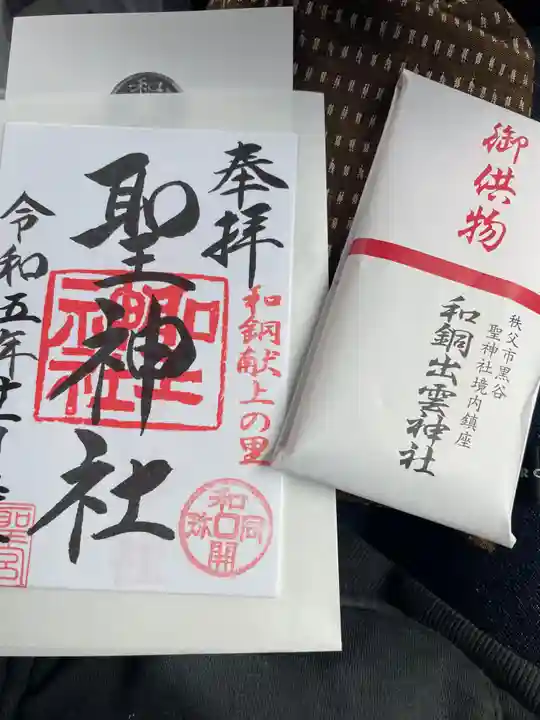 奉拝
和銅献上の里
聖神社
令和五年廿一月
和同開珎
聖宮
御供物
秩父市黒谷
聖神社境内鎮座
和銅出雲神社